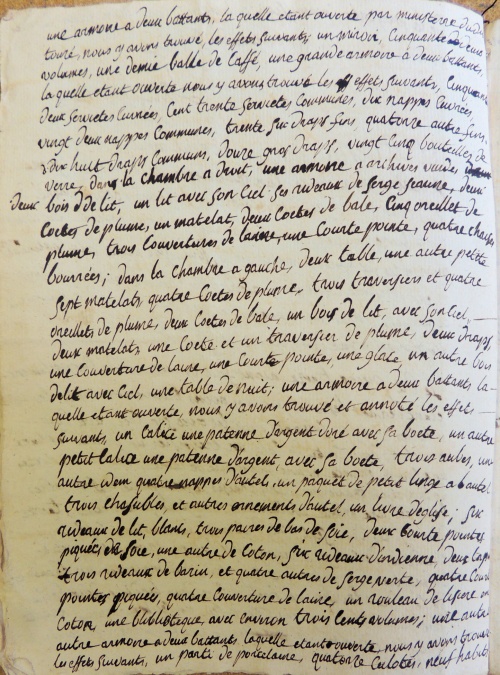 une armoire a deux battants, la quelle etant ouverte par ministere dudit
touré, nous y avons trouvé, les effets suivants, un miroir, Cinquante deux
volumes, une demie balle de Caffé, une grande armoire a deux battants,
la quelle etant ouverte nous y avons trouvé les effets suivants, Cinquante
deux servietes ouvrées, Cent trente servietes Communes, dix nappes ouvrées
vingt deux nappes Communes, trente six draps fins quatorze autre fins,
dix huit draps Communs, douze gros draps, vingt cinq bouteilles de
verre, dans la chambre a droit, une armoire a archives vuides,
deux bois de lit, un lit avec son Ciel, ses rideaux de serge jeaune, deux
Coetes de plume, un matelat, deux Coetes de bale, Cinq oreillet de
plume, trois Couvertures de laine, une Courte pointe, quatre chaises
bourrées; dans la chambre a gauche, deux table, une autre petite
sept matelats, quatre Coetes de plume, trois traversiers et quatre
oreillets de plume, deux Coetes de bale, un bois de lit, avec son Ciel,
deux matelats, une Coete et un traversier de plume, deux draps,
une Couverture de laine, une Courte pointe, une glace, un autre bois
de lit avec Ciel, une table de nuit; une armoire a deux battants, la
quelle etant ouverte, nous y avons trouvé et annoté les effets
suivants, un Calice une patenne d'argent doré avec sa boete, un autre
petit Calice une patenne d'argent, avec sa boete, trois aubes, une
autre idem quatre nappes d'autel, un paquet de petit linge a l'autel
trois chasubles, et autres ornements d'autel, un livre d'eglise; six
rideaux de lit, blants, trois paires de bas de soie, deux Courte pointes
piquées de soie, une autre de Coton, six rideaux d'indienne, deux
trois rideaux de bazin, et quatre autres de serge verte, quatre Courte
pointes piquées, quatre Couverture de laine, un rouleau de lisere en
Coton, une bibliotheque, avec environ trois Cents volumes; une autre
autre armoire a deux battants laquelle etant ouverte, nous y avons trouvé
les effets suivants, un parti de porcelaine, quatorze Culotes, neuf habits